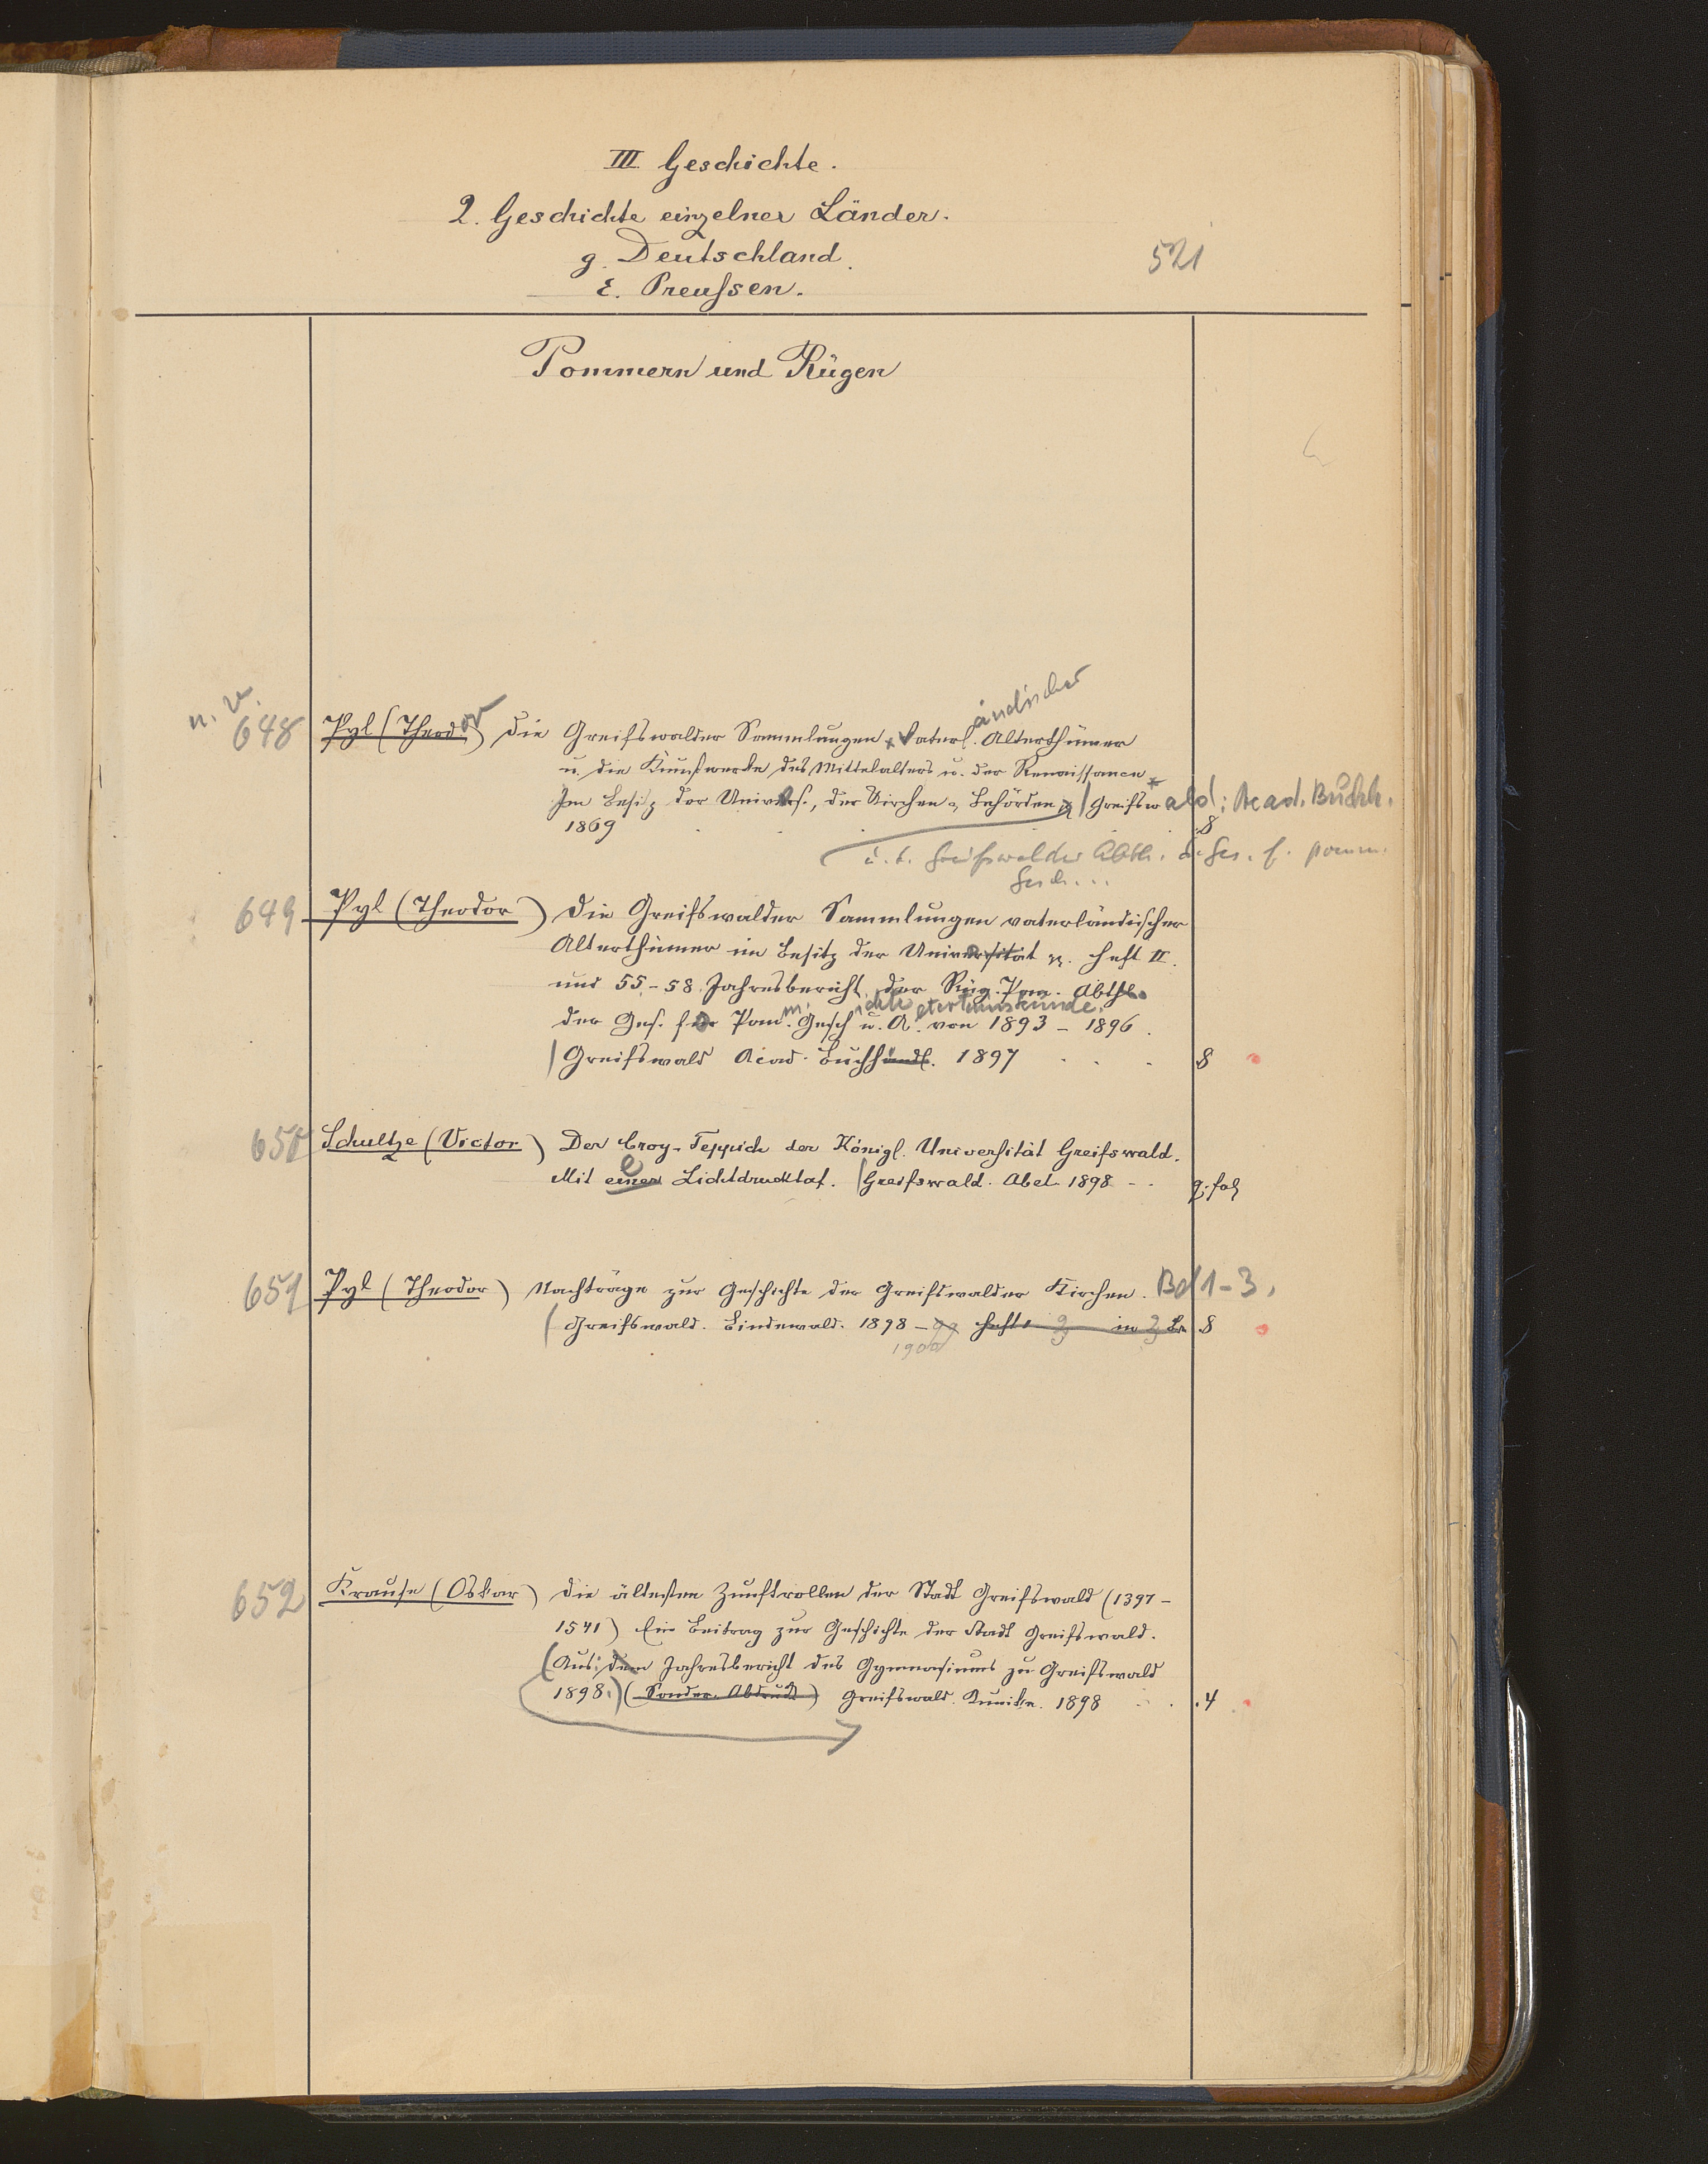 III Geschichte.
2. Geschichte einzelner Länder.
g. Deutschland.
521
ε. Preussen.
Pommern und Rügen
n. v.
ändischer
648 Pyl (Theodor) Die Greifswalder Sammlungen vaterl. Alterthümer
u. die Kunstwerke des Mittelalters u. der Renaissance
Im Besitz der Univers., der Kirchen u. Behörden / Greifswald: Acad. Buchh.
1869 8
u. d. Greifswalder Abth. d. Ges. f. pomm.
Gesch...
649 Pyl (Theodor) Die Greifswalder Sammlungen vaterländischer
Alterthümer im Besitz der Universität rc. Heft II.
und 55.-58. Jahresbericht der Rüg. Pom. Abthl.
m ichte ltertumskunde.
der Ges. für Pom. Gesch u. A. von 1893 - 1896.
/ Greifswald Acad. Buchhandl. 1897 8
650 Schultze (Victor) Der Croy-Teppich der Königl. Universität Greifswald.
Mit einer Lichtdrucktaf. / Greifswald. Abel 1898 - . q. fol
651 Pyl (Theodor) Nachträge zur Geschichte der Greifswalder Kirchen. Bd 1-3.
/ Greifswald. Bindewald. 1898 - 99 Heft 1 in 8
1900
652 Krause (Oskar) Die ältesten Zunftrollen der Stadt Greifswald (1397-
1541) Ein Beitrag zur Geschichte der Stadt Greifswald.
(Aus: dem Jahresbericht des Gymnasiums zu Greifswald
1898.) (Sonder-Abdruck) Greifswald. Kunike. 1898 4